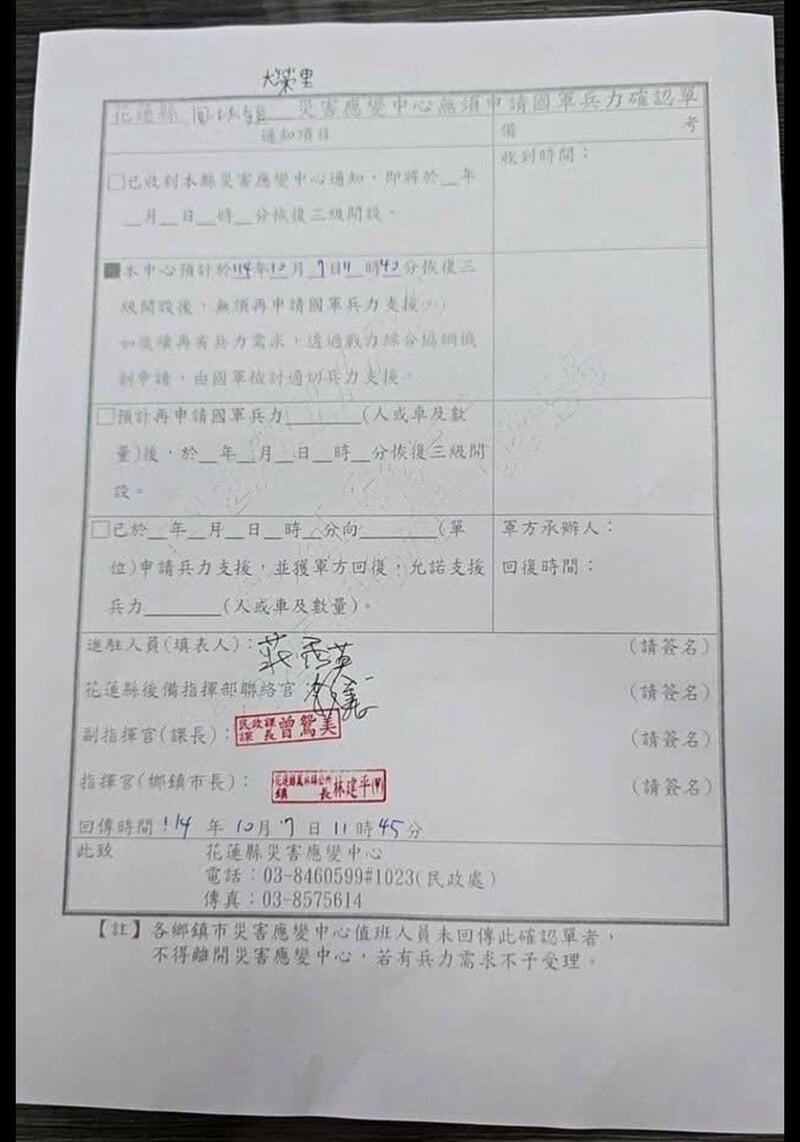 大榮里
花蓮縣 鳳林鎮 災害應變中心無須申請國軍兵力確認單
通知項目 備考
□已收到本縣災害應變中心通知,即將於__年 收到時間:
__月__日__時__分恢復三級開設。
■本中心預計於114年10月7日11時40分恢復三
級開設後,無須再申請國軍兵力支援
如後續再有兵力需求,透過戰力綜合協調機
制申請,由國軍檢討適切兵力支援。
□預計再申請國軍兵力________(人或車及數
量)後,於__年__月__日__時__分恢復三級開
設。
□已於__年__月__日__時__分向________(單 軍方承辦人:
位)申請兵力支援,並獲軍方回復,允諾支援 回復時間:
兵力________(人或車及數量)。
進駐人員(填表人): (請簽名)
花蓮縣後備指揮部聯絡官: (請簽名)
副指揮官(課長): 民政課課長 曾鴛美 (請簽名)
指揮官(鄉鎮市長): 花蓮縣鳳林鎮公所鎮長 林建平(甲) (請簽名)
回傳時間:114年10月7日11時45分
此致 花蓮縣災害應變中心
電話:03-8460599#1023(民政處)
傳真:03-8575614
【註】各鄉鎮市災害應變中心值班人員未回傳此確認單者,
不得離開災害應變中心,若有兵力需求不予受理。